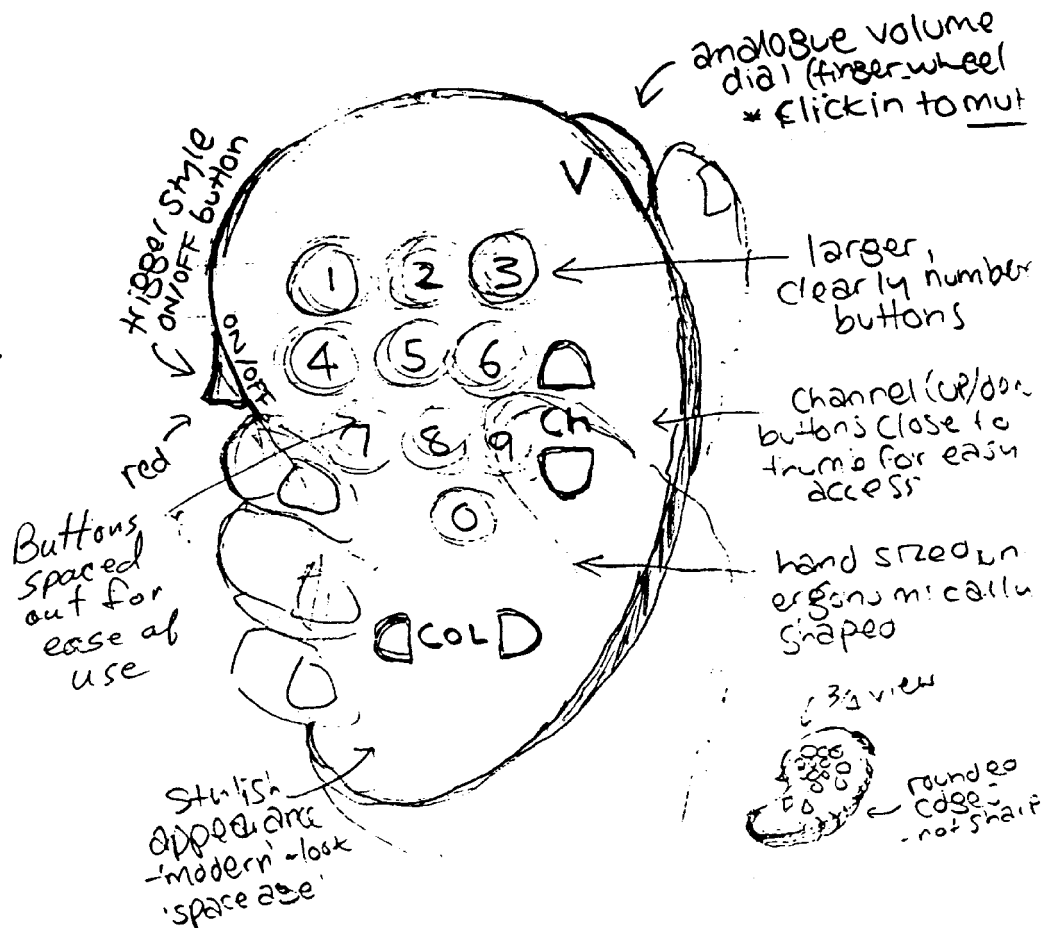 analogue volume
dial (finger wheel
* Click in to mut
V
trigger style
ON/OFF button
ON/OFF
red
1 2 3
4 5 6
7 8 9
0
Ch
COL
larger,
clearly number
buttons
Channel (up/don
buttons close to
thumb for easy
access
Buttons
spaced
out for
ease of
use
hand sized
ergonomically
shaped
Stylish
appearance
-'modern' -look
'space age'
view
rounded
edge
- not sharp